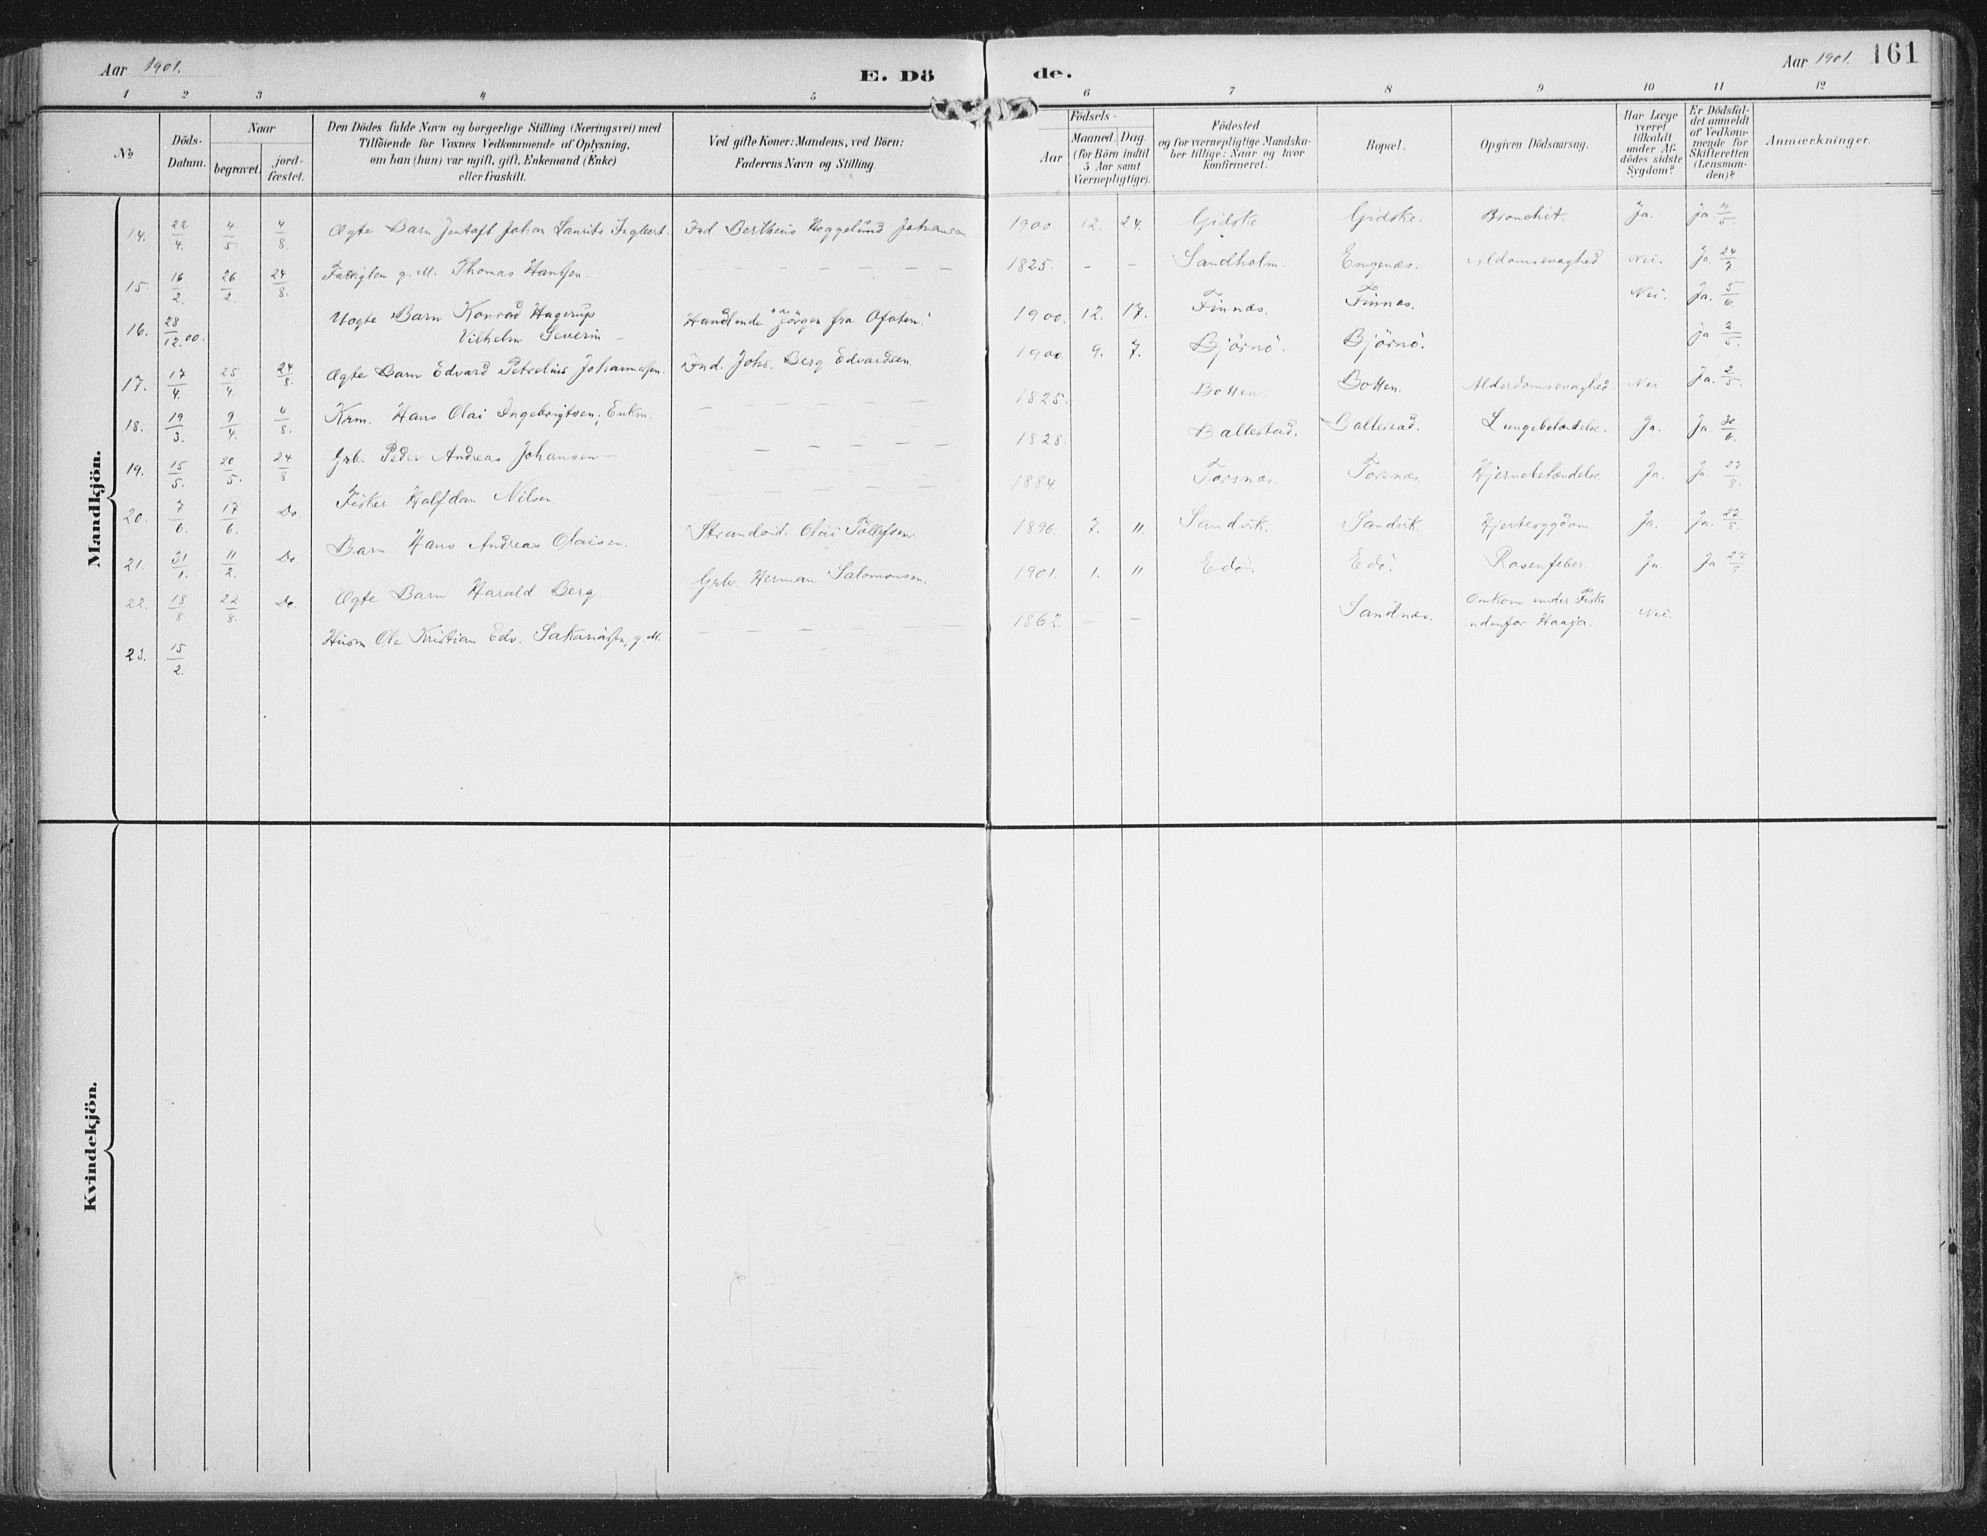 Aar 1901.
E. Dö
de.
Aar 1901. 161
1 2 3 4 5 6 7 8 9 10 11 12
No
Döds-Datum.
Naar
begravet. jord-fæstet.
Den Dödes fulde Navn og borgerlige Stilling (Næringsvei) med
Tilföiende for Voxnes Vedkommende af Oplysning,
om han (hun) var ugift, gift, Enkemand (Enke)
eller fraskilt.
Ved gifte Koner: Mandens, ved Börn:
Faderens Navn og Stilling.
Födsels-
Aar
Maaned. Dag.
(for Börn indtil
5 Aar samt
Værnepligtige).
Födested
og for værnepligtige Mandska-
ber tillige: Naar og hvor
konfirmeret.
Bopæl.
Opgiven Dödsaarsag.
Har Læge
været
tilkaldt
under Af-
dödes sidste
Sygdom?
Er Dödsfal-
det anmeldt
af Vedkom-
mende for
Skifteretten
(Lensman-
den)?
Anmærkninger.
Mandkjön.
14. 22/4. 4/5. 4/8. Ægte Barn Jentoft Johan Laurits Inglbert. Ind. Bertheus Heggelund Johansen 1900 12. 24. Gidske. Gidske. Bronchit. Ja. Ja
15. 16/2. 26/2. 24/8. Fattiglem g. M. Thomas Hanssen. — — — — — 1825. - - Sandholm. Engenæs. Aldomssvaghed Nei. Ja. 24/7
16. 28/12.00. Uægte Barn Konrad Hagerup
Vilhelm Severin — Handlende "Jörgen fra Ofoten." 1900. 12. 17. Finnæs. Finnæs. Nei. Ja. 5/6.
17. 17/4. 25/4. 24/8. Ægte Barn Edvard Petrelius Johannessen. Ind. Johs. Berg Edvardsen. 1900. 9. 7. Björnö. Björnö. Ja 2/5.
18. 19/3. 9/4. 4/8. Krm. Hans Olai Ingebrigtsen, Enkm. — — — — — 1825. Botten. Botten. Alderdomssvaghed. Nei Ja. 2/5.
19. 15/5. 20/5. 24/8 Grb. Peder Andreas Johansen — — — — — 1828. Baltestad. Baltestad. Lungebetændelse. Ja. Ja. 30/6.
20. 7/6. 17/6. Do Fisker Halfdan Nilsen. — — — — — 1884 Torsnæs. Torsnæs. Hjernebetændelse. Ja. Ja. 27/8.
21. 31/1. 11/2. Do Barn Hans Andreas Olaisen. Strandsid. Olai Tollefsen. 1896. 7. 11. Sandvik. Sandvik. Hjertesygdom. Ja. Ja. 27/8.
22. 18/8 22/8. Do. Ægte Barn Harald Berg. Grbr. Herman Salomonsen. 1901. 1. 11. Edö. Edö. Rosenfeber. Ja. Ja 27/8
23. 15/2. Husm Ole Kristian Edv. Sakariassen, g. M. — — — — — 1862. - - Sandnæs. Omkom under Fiske
udenfor Haaja. Nei.
Kvindekjön.